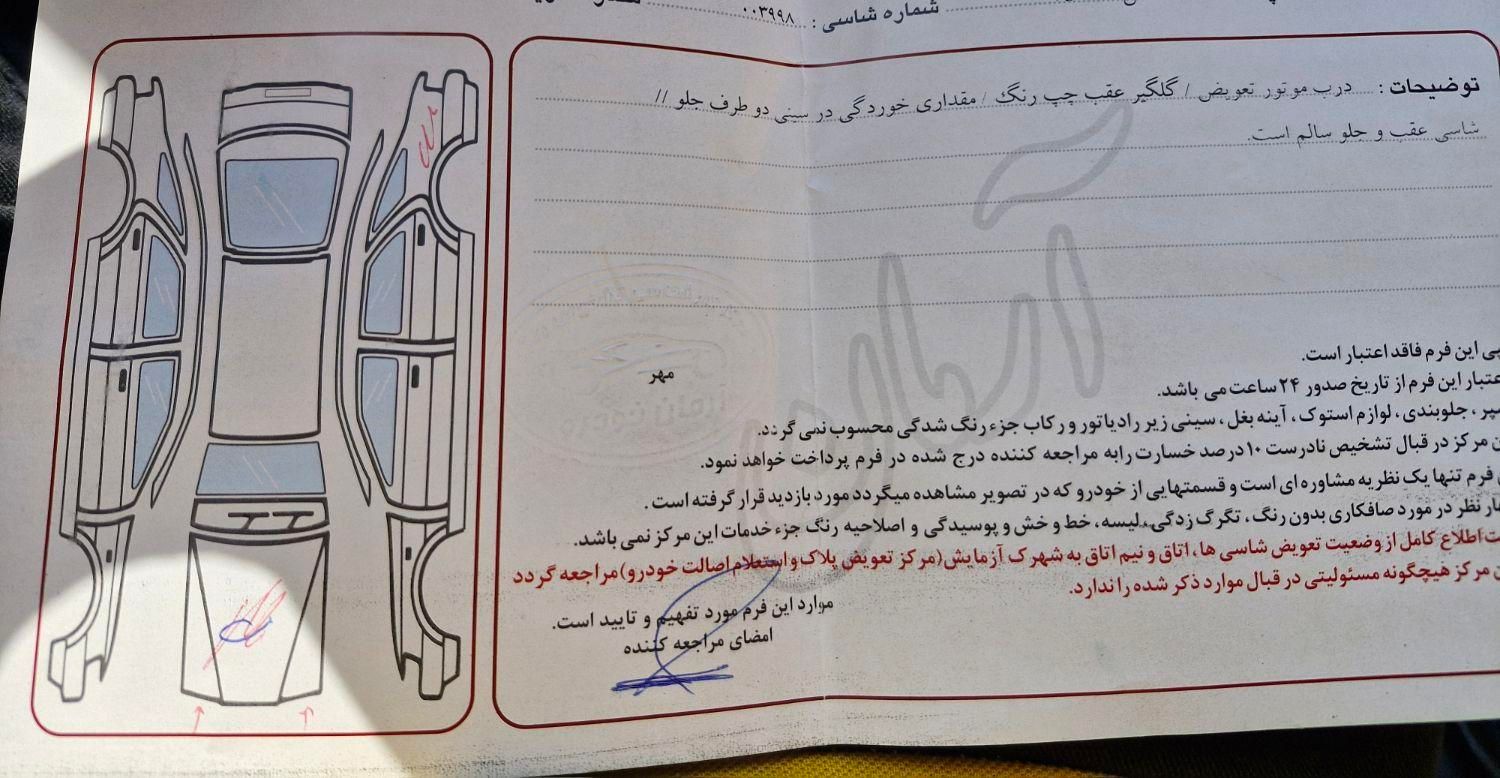 شماره شاسی : ۰۰۳۹۹۸
توضیحات : درب موتور تعویض / گلگیر عقب چپ رنگ / مقداری خوردگی در سینی دو طرف جلو //
شاسی عقب و جلو سالم است.
این فرم فاقد اعتبار است.
اعتبار این فرم از تاریخ صدور ۲۴ ساعت می باشد.
سپر ، جلوبندی ، لوازم استوک ، آینه بغل ، سینی زیر رادیاتور و رکاب جزء رنگ شدگی محسوب نمی گردد.
مرکز در قبال تشخیص نادرست ۱۰ درصد خسارت را به مراجعه کننده درج شده در فرم پرداخت خواهد نمود.
فرم تنها یک نظریه مشاوره ای است و قسمتهایی از خودرو که در تصویر مشاهده میگردد مورد بازدید قرار گرفته است .
نظر در مورد صافکاری بدون رنگ ، تگرگ زدگی ، لیسه ، خط و خش و پوسیدگی و اصلاحیه رنگ جزء خدمات این مرکز نمی باشد.
اطلاع کامل از وضعیت تعویض شاسی ها ، اتاق و نیم اتاق به شهرک آزمایش (مرکز تعویض پلاک و استعلام اصالت خودرو) مراجعه گردد
مرکز هیچگونه مسئولیتی در قبال موارد ذکر شده را ندارد.
مهر
موارد این فرم مورد تفهیم و تایید است.
امضای مراجعه کننده